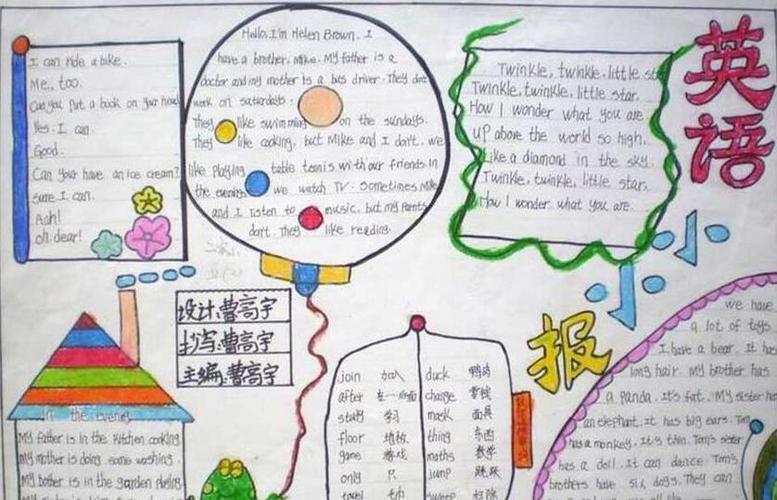 I can ride a bike.
Me, too.
Can you put a book on your head
Yes. I can
Good.
Can your have an ice cream?
sure. I can.
Aah!
oh dear!
Hello. I'm Helen Brown. I
have a brother. Mike. My father is a
doctor and my mother is a bus driver. They don't
work on saturdays.
They like swimming on the sundays.
They like cooking, but Mike and I don't. we
like playing table tennis with our friends. In
the evening we watch TV. Sometimes Mike
and I listen to music, but my parents
don't. They like reading.
Twinkle, twinkle, little st
Twinkle, twinkle, little star,
How I wonder what you are
up above the world so high,
Like a diamond in the sky.
Twinkle, twinkle, little star,
How I wonder what you are.
英语
小小
报
设计:曹高宇
抄写:曹高宇
主编:曹高宇
In the evening
My father is in the kitchen cooking
My mother is doing some washing.
My bother is in the garden playing
join 加入
after 在…后面
study 学习
floor 地板
game 游戏
only 只
duck 鸭肉
change 零钱
mask 面具
thing 东西
maths 数学
jump 跳跃
sweep 扫除
we have
a lot of toys.
I have a bear. It has
long hair. My brother has
a panda. It's fat. My sister has
an elephant. It has big ears. Tom
has a monkey. It's thin. Tom's sister
has a doll. It can dance. Tom's
brothers have six dogs. They can